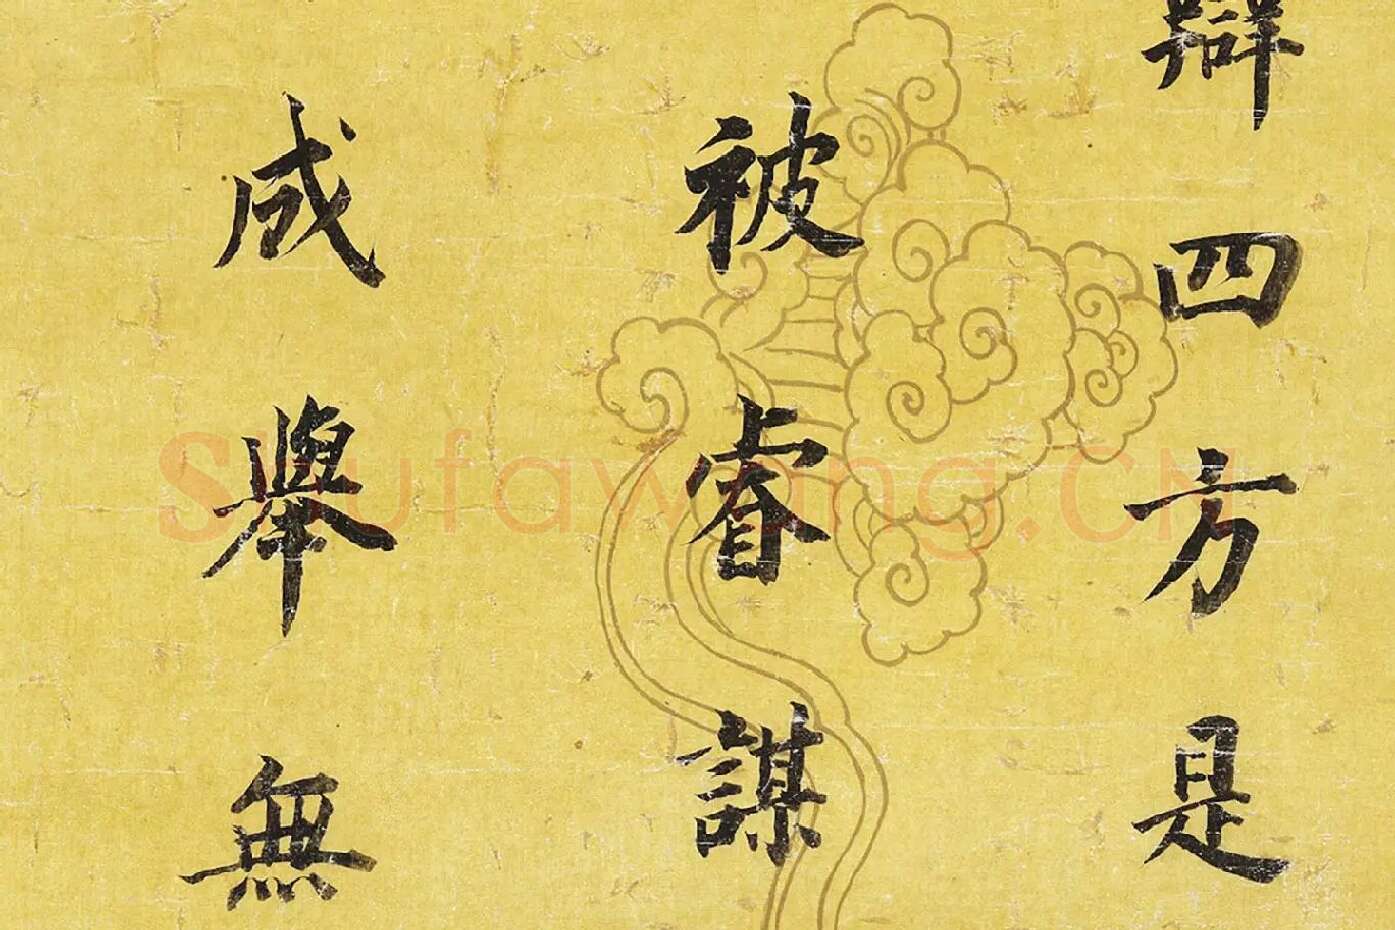 四方是
被睿謀
咸舉無
Shufawang.CN